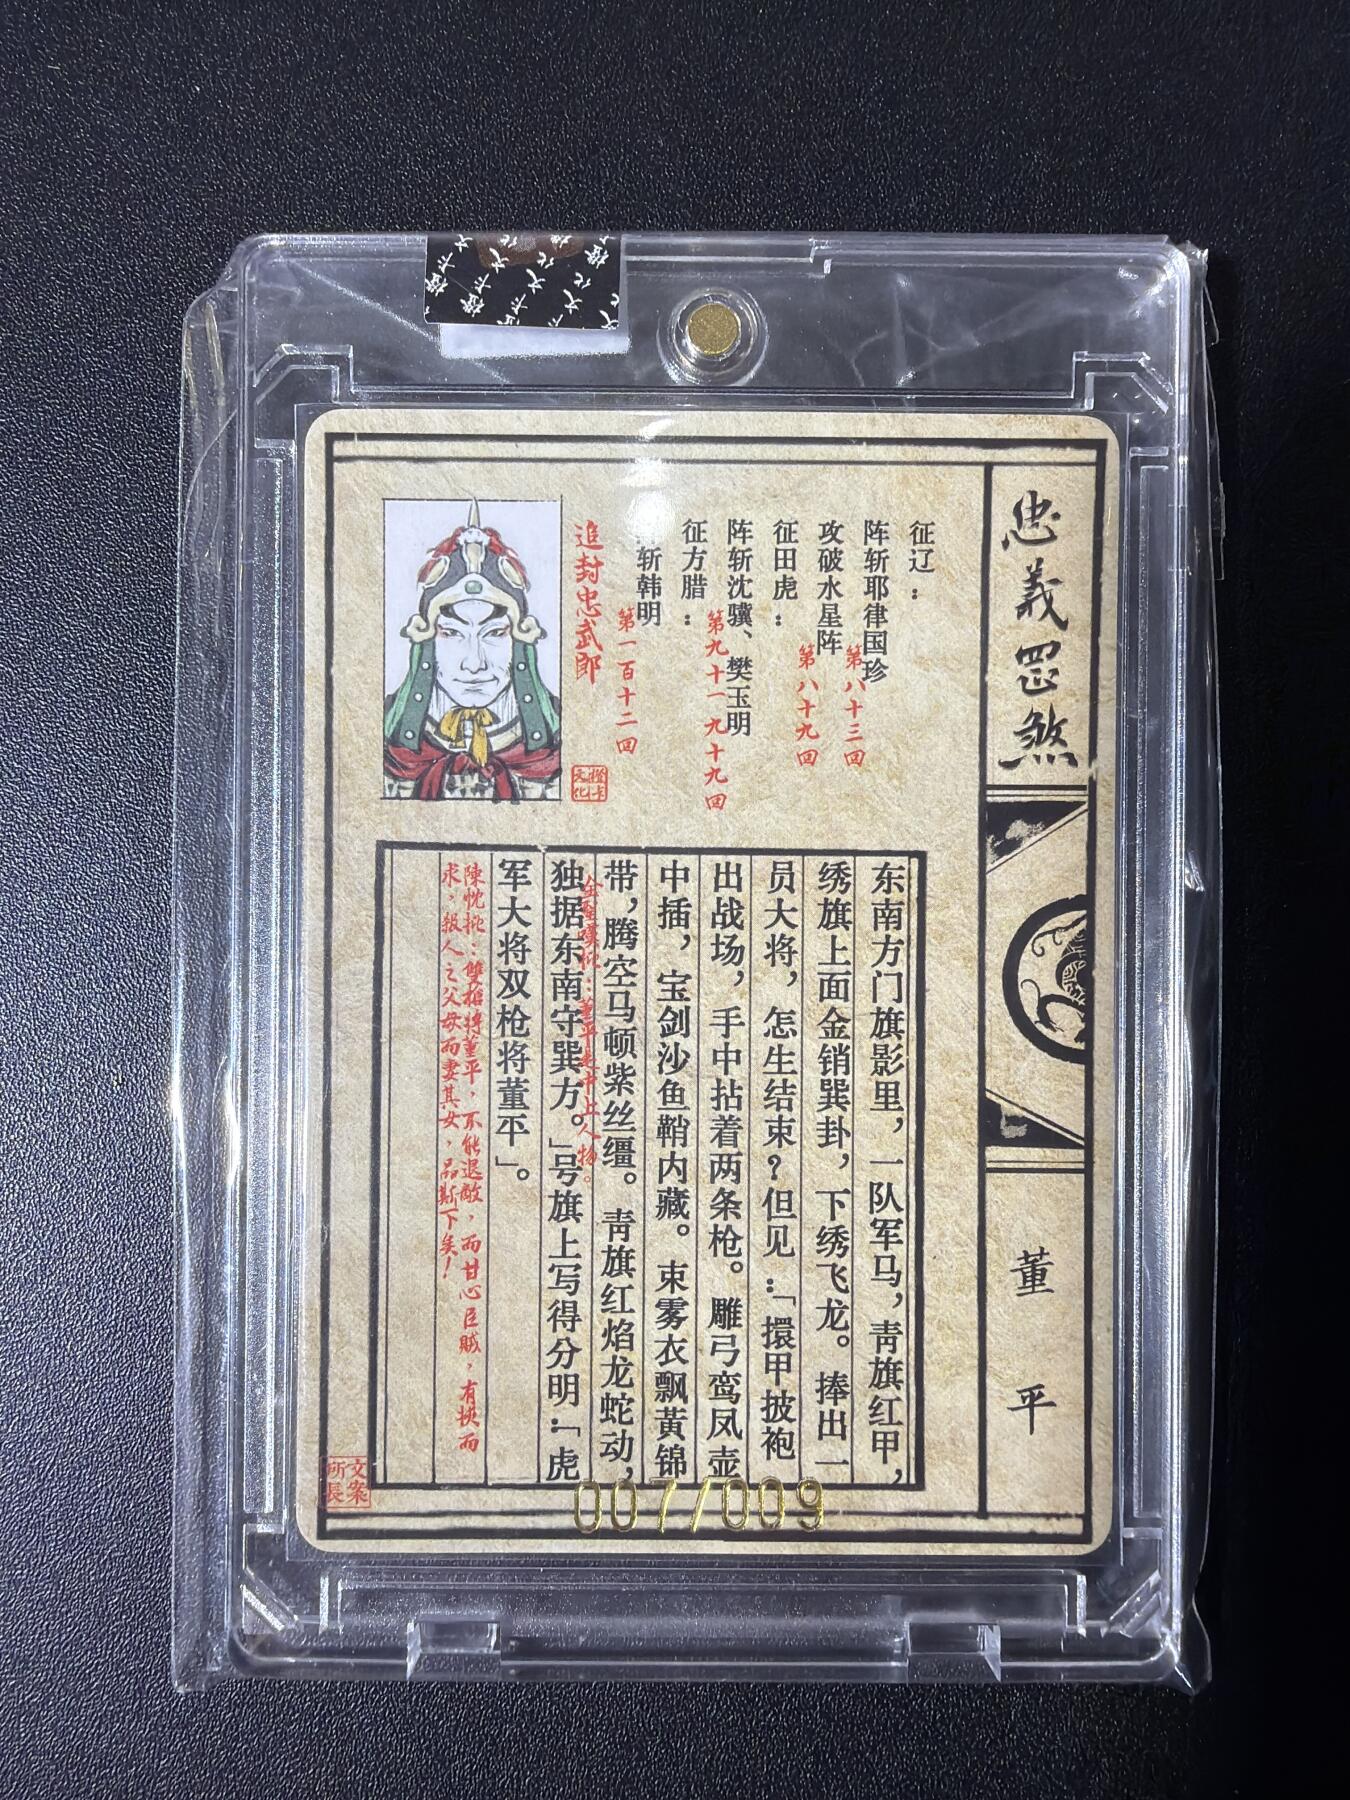 忠義罡煞
董平
征辽：
阵斩耶律国珍
第八十三回
攻破水星阵
第八十九回
征田虎：
阵斩沈骥、樊玉明
第九十一 九十九回
征方腊：
斩韩明
第一百十二回
追封忠武郎
橙卡文化
东南方门旗影里，一队军马，青旗红甲，
绣旗上面金销巽卦，下绣飞龙。捧出一
员大将，怎生结束？但见：「擐甲披袍
出战场，手中拈着两条枪。雕弓鸾凤壶
中插，宝剑沙鱼鞘内藏。束雾衣飘黄锦
带，腾空马顿紫丝缰。青旗红焰龙蛇动，
独据东南守巽方。」号旗上写得分明：「虎
军大将双枪将董平」。
金聖嘆批：董平是中上人物。
陳忱批：雙槍將董平，不能退敵，而甘心臣賊，有挾而
求，報人之父母而妻其女，品斯下矣！
文案所長
007/009